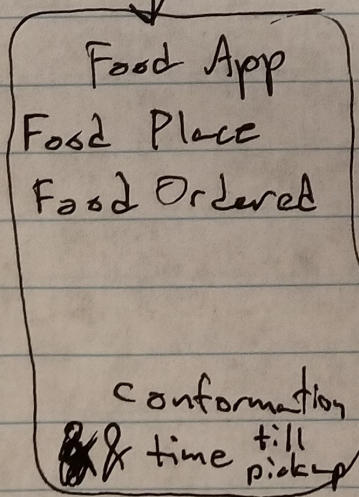 Food App
Food Place
Food Ordered
Conformation
& time till
pickup